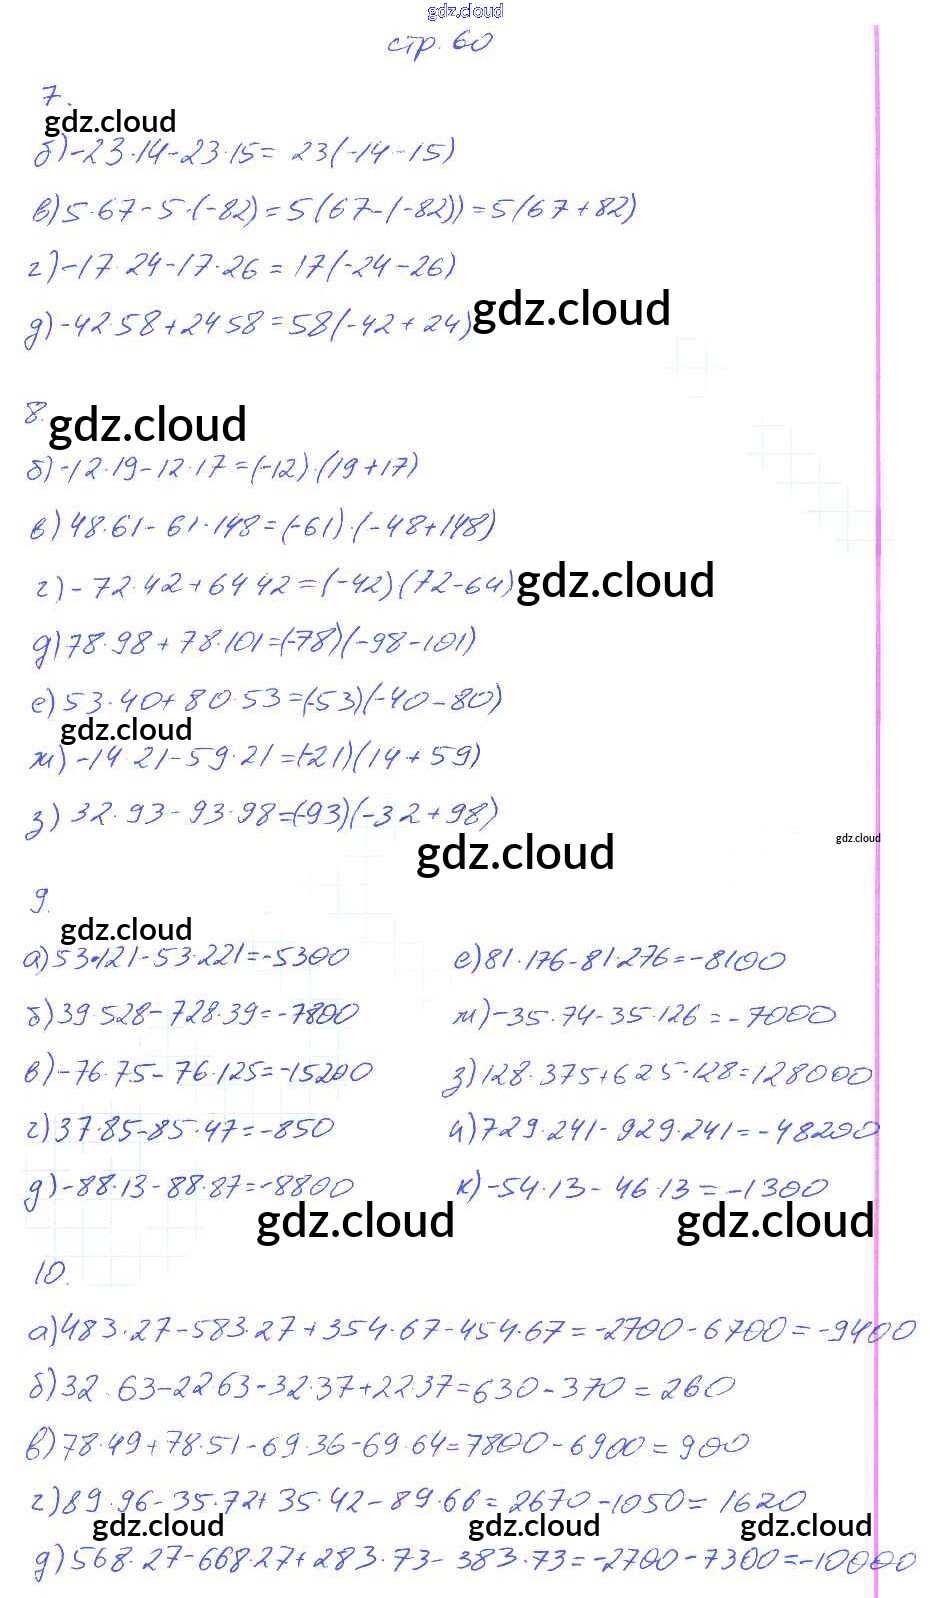 gdz.cloud
стр. 60
7.
gdz.cloud
б) -23·14-23·15= 23(-14-15)
в) 5·67-5·(-82)=5(67-(-82))=5(67+82)
г) -17·24-17·26 = 17(-24-26)
д) -42·58+2458=58(-42+24)
gdz.cloud
8.
gdz.cloud
б) -12·19-12·17=(-12)·(19+17)
в) 48·61-61·148=(-61)·(-48+148)
г) -72·42+6442=(-42)(72-64)
gdz.cloud
д) 78·98+78·101=(-78)(-98-101)
е) 53·40+80·53=(-53)(-40-80)
gdz.cloud
ж) -14·21-59·21=(-21)(14+59)
з) 32·93-93·98=(-93)(-32+98)
gdz.cloud
gdz.cloud
9.
gdz.cloud
а) 53·121-53·221=-5300
б) 39·528-728·39=-7800
в) -76·75-76·125=-15200
г) 37·85-85·47=-850
д) -88·13-88·87=-8800
gdz.cloud
е) 81·176-81·276=-8100
ж) -35·74-35·126=-7000
з) 128·375+625·128=128000
и) 729·241-929·241=-48200
к) -54·13-46·13=-1300
gdz.cloud
10.
а) 483·27-583·27+354·67-454·67=-2700-6700=-9400
б) 32·63-2263-32·37+22·37=630-370=260
в) 78·49+78·51-69·36-69·64=7800-6900=900
г) 89·96-35·72+35·42-89·66=2670-1050=1620
gdz.cloud gdz.cloud gdz.cloud
д) 568·27-668·27+283·73-383·73=-2700-7300=-10000